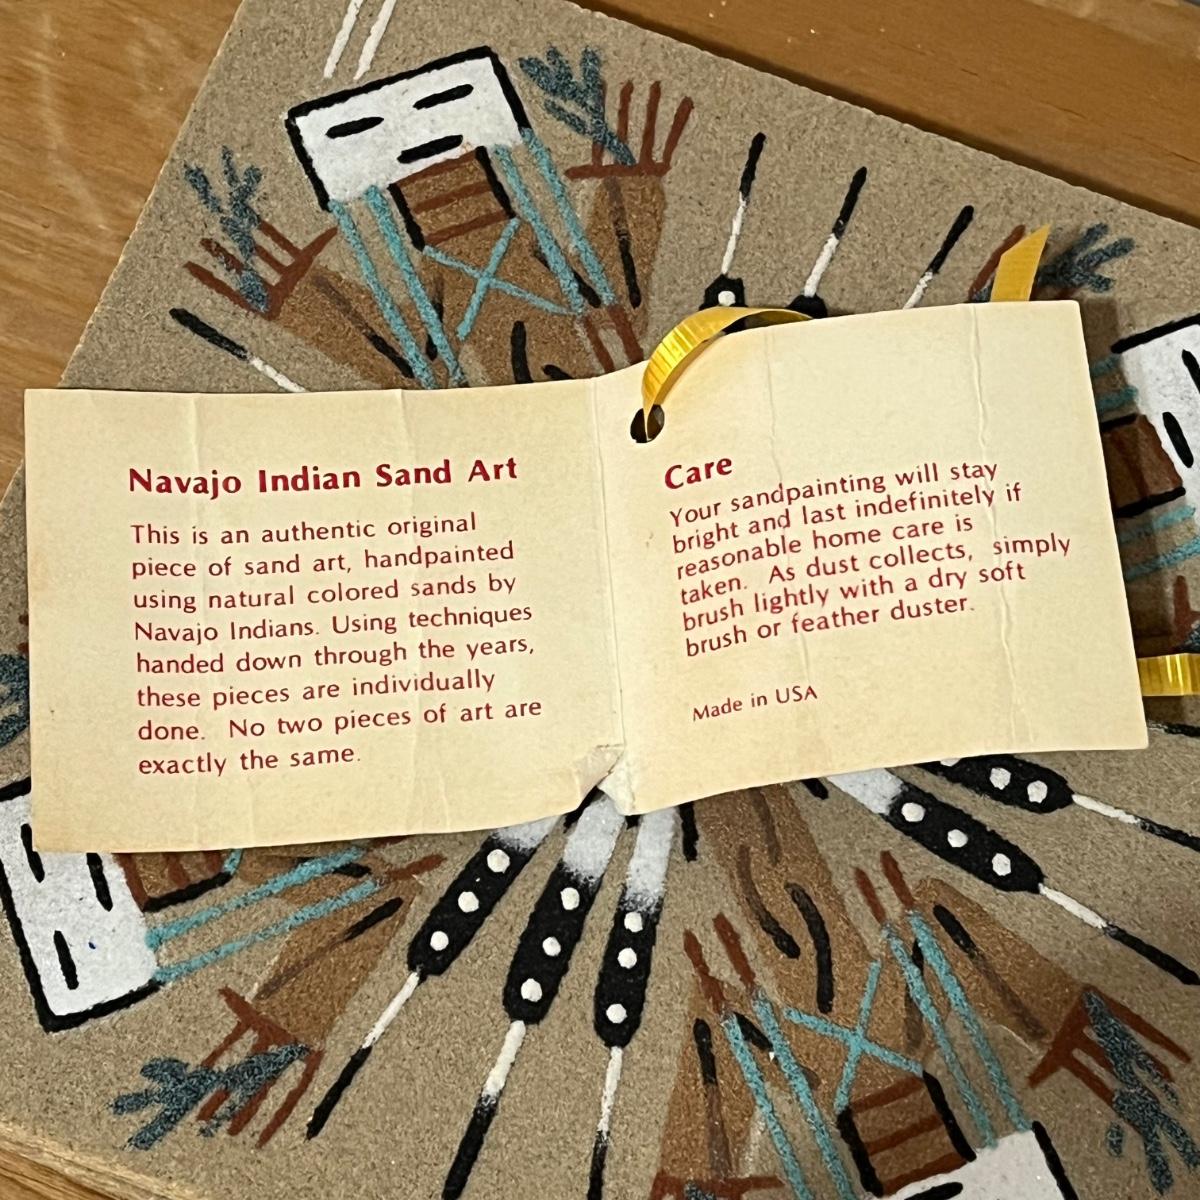 Navajo Indian Sand Art
This is an authentic original
piece of sand art, handpainted
using natural colored sands by
Navajo Indians. Using techniques
handed down through the years,
these pieces are individually
done. No two pieces of art are
exactly the same.
Care
Your sandpainting will stay
bright and last indefinitely if
reasonable home care is
taken. As dust collects, simply
brush lightly with a dry soft
brush or feather duster.
Made in USA